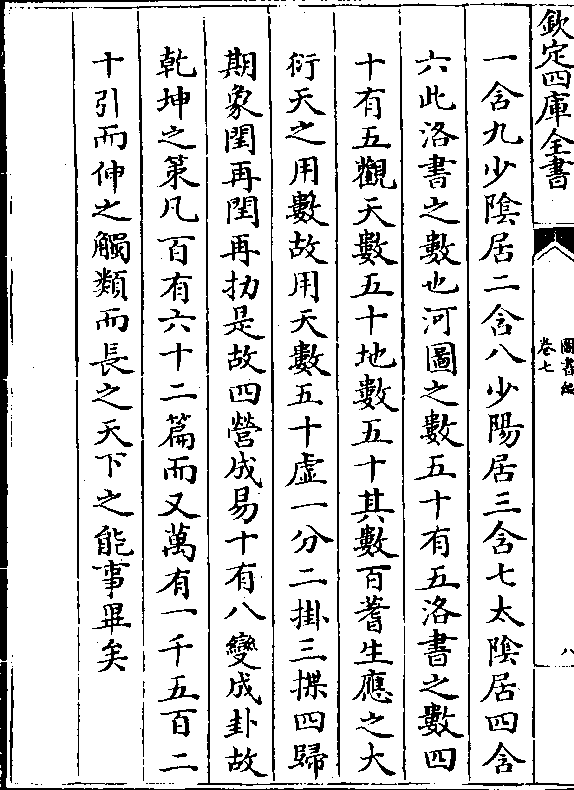 欽定四庫全書
圖書編
卷七
八
一含九少陰居二含八少陽居三含七太陰居四含
六此洛書之數也河圖之數五十有五洛書之數四
十有五觀天數五十地數五十其數百蓍生應之大
衍天之用數故用天數五十虛一分二掛三揲四歸
期象閏再閏再扐是故四營成易十有八變成卦故
乾坤之策凡百有六十二篇而又萬有一千五百二
十引而伸之觸類而長之天下之能事畢矣